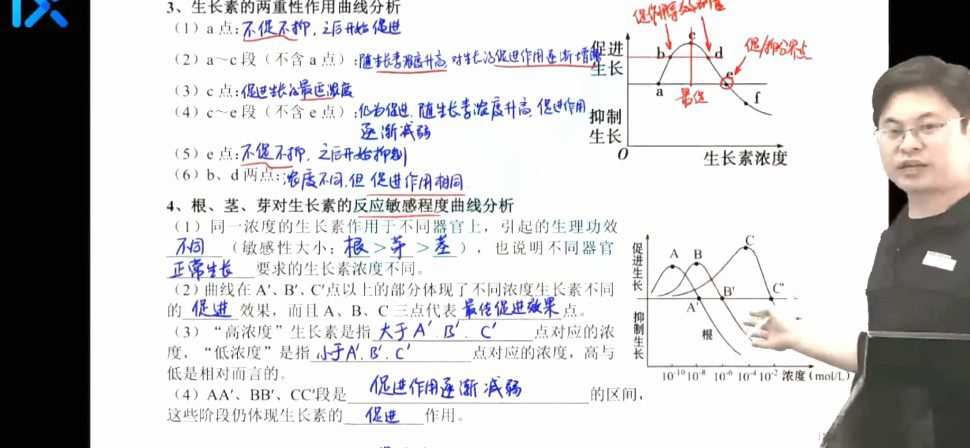 3、生长素的两重性作用曲线分析
(1) a点:不促不抑，之后开始促进
(2) a～c段(不含a点):随生长素浓度升高 对生长的促进作用逐渐增强
(3) c点:促进生长的最适浓度
(4) c～e段(不含e点):仍为促进，随生长素浓度升高，促进作用
逐渐减弱
(5) e点:不促不抑，之后开始抑制
(6) b、d两点:浓度不同，但促进作用相同
促进
生长
抑制
生长
a
b
c
d
e
f
O
生长素浓度
最佳
促/抑分界点
4、根、茎、芽对生长素的反应敏感程度曲线分析
(1) 同一浓度的生长素作用于不同器官上，引起的生理功效
不同 (敏感性大小: 根 > 芽 > 茎 )，也说明不同器官
正常生长 要求的生长素浓度不同。
(2) 曲线在A'、B'、C'点以上的部分体现了不同浓度生长素不同
的 促进 效果，而且A、B、C三点代表 最佳促进效果 点。
(3) “高浓度”生长素是指 大于A'.B'.C' 点对应的浓
度，“低浓度”是指 小于A'.B'.C' 点对应的浓度，高与
低是相对而言的。
(4) AA'、BB'、CC'段是 促进作用逐渐减弱 的区间，
这些阶段仍体现生长素的 促进 作用。
促进生长
抑制生长
A
B
C
A'
B'
C'
根
10⁻¹⁰ 10⁻⁸ 10⁻⁶ 10⁻⁴ 10⁻² 浓度(mol/L)